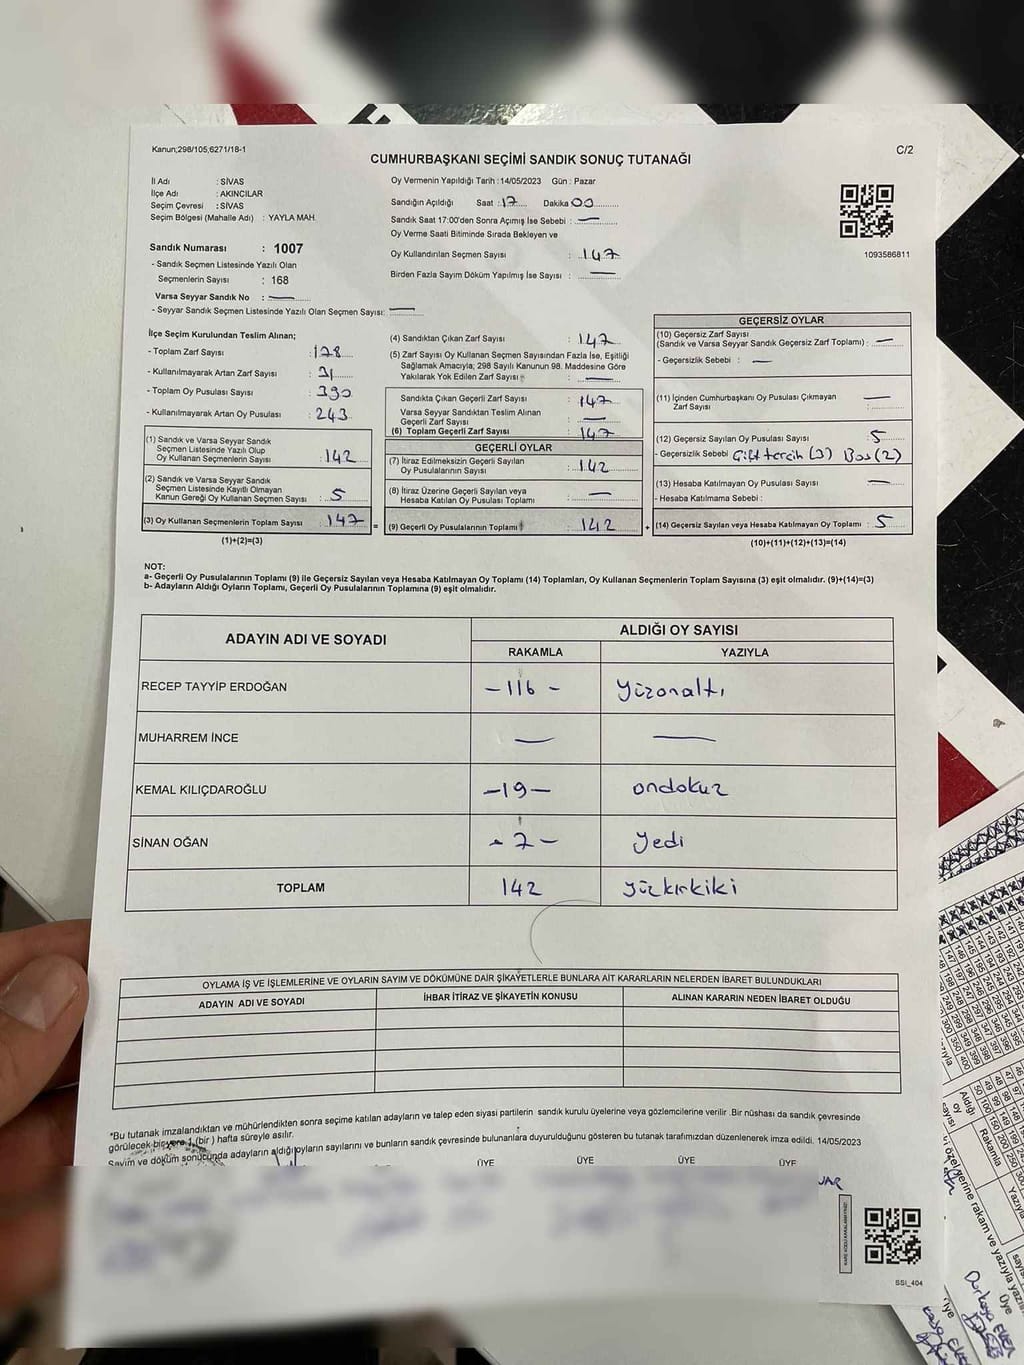 Kanun;298/105,6271/18-1
C/2
CUMHURBAŞKANI SEÇİMİ SANDIK SONUÇ TUTANAĞI
İl Adı : SİVAS
İlçe Adı : AKINCILAR
Seçim Çevresi : SİVAS
Seçim Bölgesi (Mahalle Adı) : YAYLA MAH.
Sandık Numarası : 1007
- Sandık Seçmen Listesinde Yazılı Olan
Seçmenlerin Sayısı : 168
Varsa Seyyar Sandık No : —
- Seyyar Sandık Seçmen Listesinde Yazılı Olan Seçmen Sayısı: —
Oy Vermenin Yapıldığı Tarih : 14/05/2023 Gün : Pazar
Sandığın Açıldığı Saat : 17 Dakika 00
Sandık Saat 17:00'den Sonra Açımış İse Sebebi : —
Oy Verme Saati Bitiminde Sırada Bekleyen ve
Oy Kullandırılan Seçmen Sayısı : 147
Birden Fazla Sayım Döküm Yapılmış İse Sayısı : —
1093586811
İlçe Seçim Kurulundan Teslim Alınan;
- Toplam Zarf Sayısı : 178
- Kullanılmayarak Artan Zarf Sayısı : 31
- Toplam Oy Pusulası Sayısı : 390
- Kullanılmayarak Artan Oy Pusulası : 243
(1) Sandık ve Varsa Seyyar Sandık
Seçmen Listesinde Yazılı Olup
Oy Kullanan Seçmenlerin Sayısı : 142
(2) Sandık ve Varsa Seyyar Sandık
Seçmen Listesinde Kayıtlı Olmayan
Kanun Gereği Oy Kullanan Seçmen Sayısı : 5
(3) Oy Kullanan Seçmenlerin Toplam Sayısı : 147 =
(1)+(2)=(3)
(4) Sandıktan Çıkan Zarf Sayısı : 147
(5) Zarf Sayısı Oy Kullanan Seçmen Sayısından Fazla İse, Eşitliği
Sağlamak Amacıyla; 298 Sayılı Kanunun 98. Maddesine Göre
Yakılarak Yok Edilen Zarf Sayısı : —
Sandıkta Çıkan Geçerli Zarf Sayısı : 147
Varsa Seyyar Sandıktan Teslim Alınan
Geçerli Zarf Sayısı : —
(6) Toplam Geçerli Zarf Sayısı : 147
GEÇERLİ OYLAR
(7) İtiraz Edilmeksizin Geçerli Sayılan
Oy Pusulalarının Sayısı : 142
(8) İtiraz Üzerine Geçerli Sayılan veya
Hesaba Katılan Oy Pusulası Toplamı : —
(9) Geçerli Oy Pusulalarının Toplamı : 142 +
GEÇERSİZ OYLAR
(10) Geçersiz Zarf Sayısı
(Sandık ve Varsa Seyyar Sandık Geçersiz Zarf Toplamı) : —
- Geçersizlik Sebebi : —
(11) İçinden Cumhurbaşkanı Oy Pusulası Çıkmayan
Zarf Sayısı : —
(12) Geçersiz Sayılan Oy Pusulası Sayısı : 5
- Geçersizlik Sebebi Çift tercih (3) Bos (2)
(13) Hesaba Katılmayan Oy Pusulası Sayısı : —
- Hesaba Katılmama Sebebi :
(14) Geçersiz Sayılan veya Hesaba Katılmayan Oy Toplamı : 5
(10)+(11)+(12)+(13)=(14)
NOT:
a- Geçerli Oy Pusulalarının Toplamı (9) ile Geçersiz Sayılan veya Hesaba Katılmayan Oy Toplamı (14) Toplamları, Oy Kullanan Seçmenlerin Toplam Sayısına (3) eşit olmalıdır. (9)+(14)=(3)
b- Adayların Aldığı Oyların Toplamı, Geçerli Oy Pusulalarının Toplamına (9) eşit olmalıdır.
ADAYIN ADI VE SOYADI ALDIĞI OY SAYISI
RAKAMLA YAZIYLA
RECEP TAYYİP ERDOĞAN -116- Yüzonaltı
MUHARREM İNCE — —
KEMAL KILIÇDAROĞLU -19- ondokuz
SİNAN OĞAN -7- Yedi
TOPLAM 142 yüzkırkiki
OYLAMA İŞ VE İŞLEMLERİNE VE OYLARIN SAYIM VE DÖKÜMÜNE DAİR ŞİKAYETLERLE BUNLARA AİT KARARLARIN NELERDEN İBARET BULUNDUKLARI
ADAYIN ADI VE SOYADI İHBAR İTİRAZ VE ŞİKAYETİN KONUSU ALINAN KARARIN NEDEN İBARET OLDUĞU
*Bu tutanak imzalandıktan ve mühürlendikten sonra seçime katılan adayların ve talep eden siyasi partilerin sandık kurulu üyelerine veya gözlemcilerine verilir .Bir nüshası da sandık çevresinde
görülecek bir yere 1 (bir ) hafta süreyle asılır.
Sayım ve döküm sonucunda adayların aldığı oyların sayılarını ve bunların sandık çevresinde bulunanlara duyurulduğunu gösteren bu tutanak tarafımızdan düzenlenerek imza edildi. 14/05/2023
ÜYE ÜYE ÜYE ÜYE
SSI_404